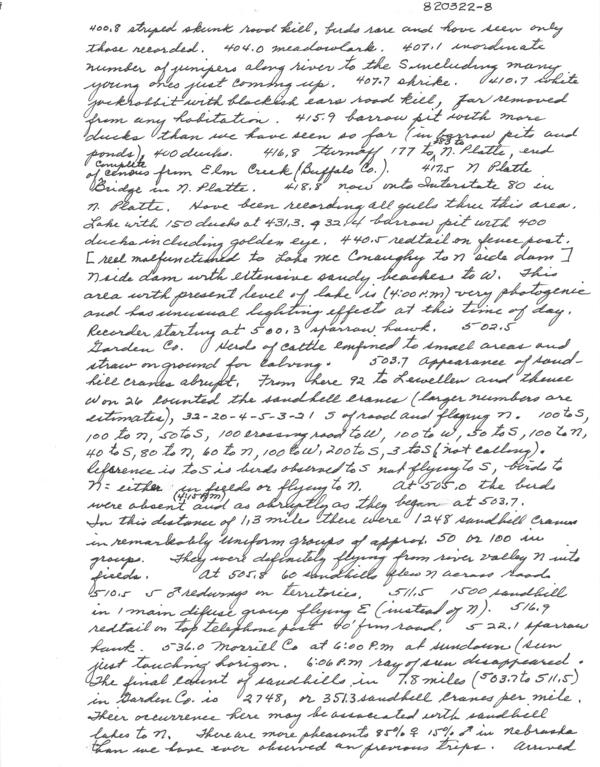 820322-8
400.8 striped skunk road kill, birds rare and have seen only
those recorded. 404.0 meadowlark. 407.1 inordinate
number of junipers along river to the S including many
young ones just coming up. 407.7 shrike. 410.7 white
jackrabbit with blackish ears road kill, far removed
from any habitation. 415.9 barrow pit with more
ducks than we have seen so far (in barrow pits and
ponds), 400 ducks. 416.8 turnoff 177 to N. Platte, end
of complete census from Elm Creek (Buffalo Co.). 417.5 N Platte
Bridge in N. Platte. 418.8 now onto Interstate 80 in
N. Platte. Have been recording all gulls thru this area.
Lake with 150 ducks at 431.3. 432.4 barrow pit with 400
ducks including golden eye. 440.5 redtail on fence post.
[reel malfunctioned to Lake Mc Conaughy to N side dam]
N side dam with extensive sandy beaches to W. This
area with present level of lake is (4:00 P.M) very photogenic
and has unusual lighting effects at this time of day.
Recorder starting at 500.3 sparrow hawk. 502.5
Garden Co. Herds of cattle confined to small areas and
straw on ground for calving. 503.7 Appearance of sand-
hill cranes abrupt. From here 92 to Lewellen and thence
W on 26 counted the sandhill cranes (larger numbers are
estimates), 32-20-4-5-3-21 S of road and flying N. 100 to S,
100 to N, 50 to S, 100 crossing road to W, 100 to W, 50 to S, 100 to N,
40 to S, 80 to N, 60 to N, 100 to W, 200 to S, 3 to S (not calling).
Reference is to S is birds observed to S not flying to S, birds to
N = either in fields or flying to N. At 505.0 the birds
were absent (4:45 P.M) and as abruptly as they began at 503.7.
In this distance of 1.3 mile there were 1248 sandhill cranes
in remarkably uniform groups of approx. 50 or 100 in
groups. They were definitely flying from river valley N into
fields. At 505.8 60 sandhills flew N across road.
510.5 5 ♂ redwings on territories. 511.5 1500 sandhill
in 1 main difuse group flying E (instead of N). 516.9
redtail on top telephone post 40' from road. 522.1 sparrow
hawk. 536.0 Morrill Co at 6:00 P.m at sundown (sun
just touching horizon. 6:06 P.M ray of sun disappeared.
The final count of sandhills in 7.8 miles (503.7 to 511.5)
in Garden Co. is 2748, or 351.3 sandhill cranes per mile.
Their occurrence here may be associated with sandhill
lakes to N. There are more pheasants 85% ♀ 15% ♂ in Nebraska
than we have ever observed on previous trips. Arrived